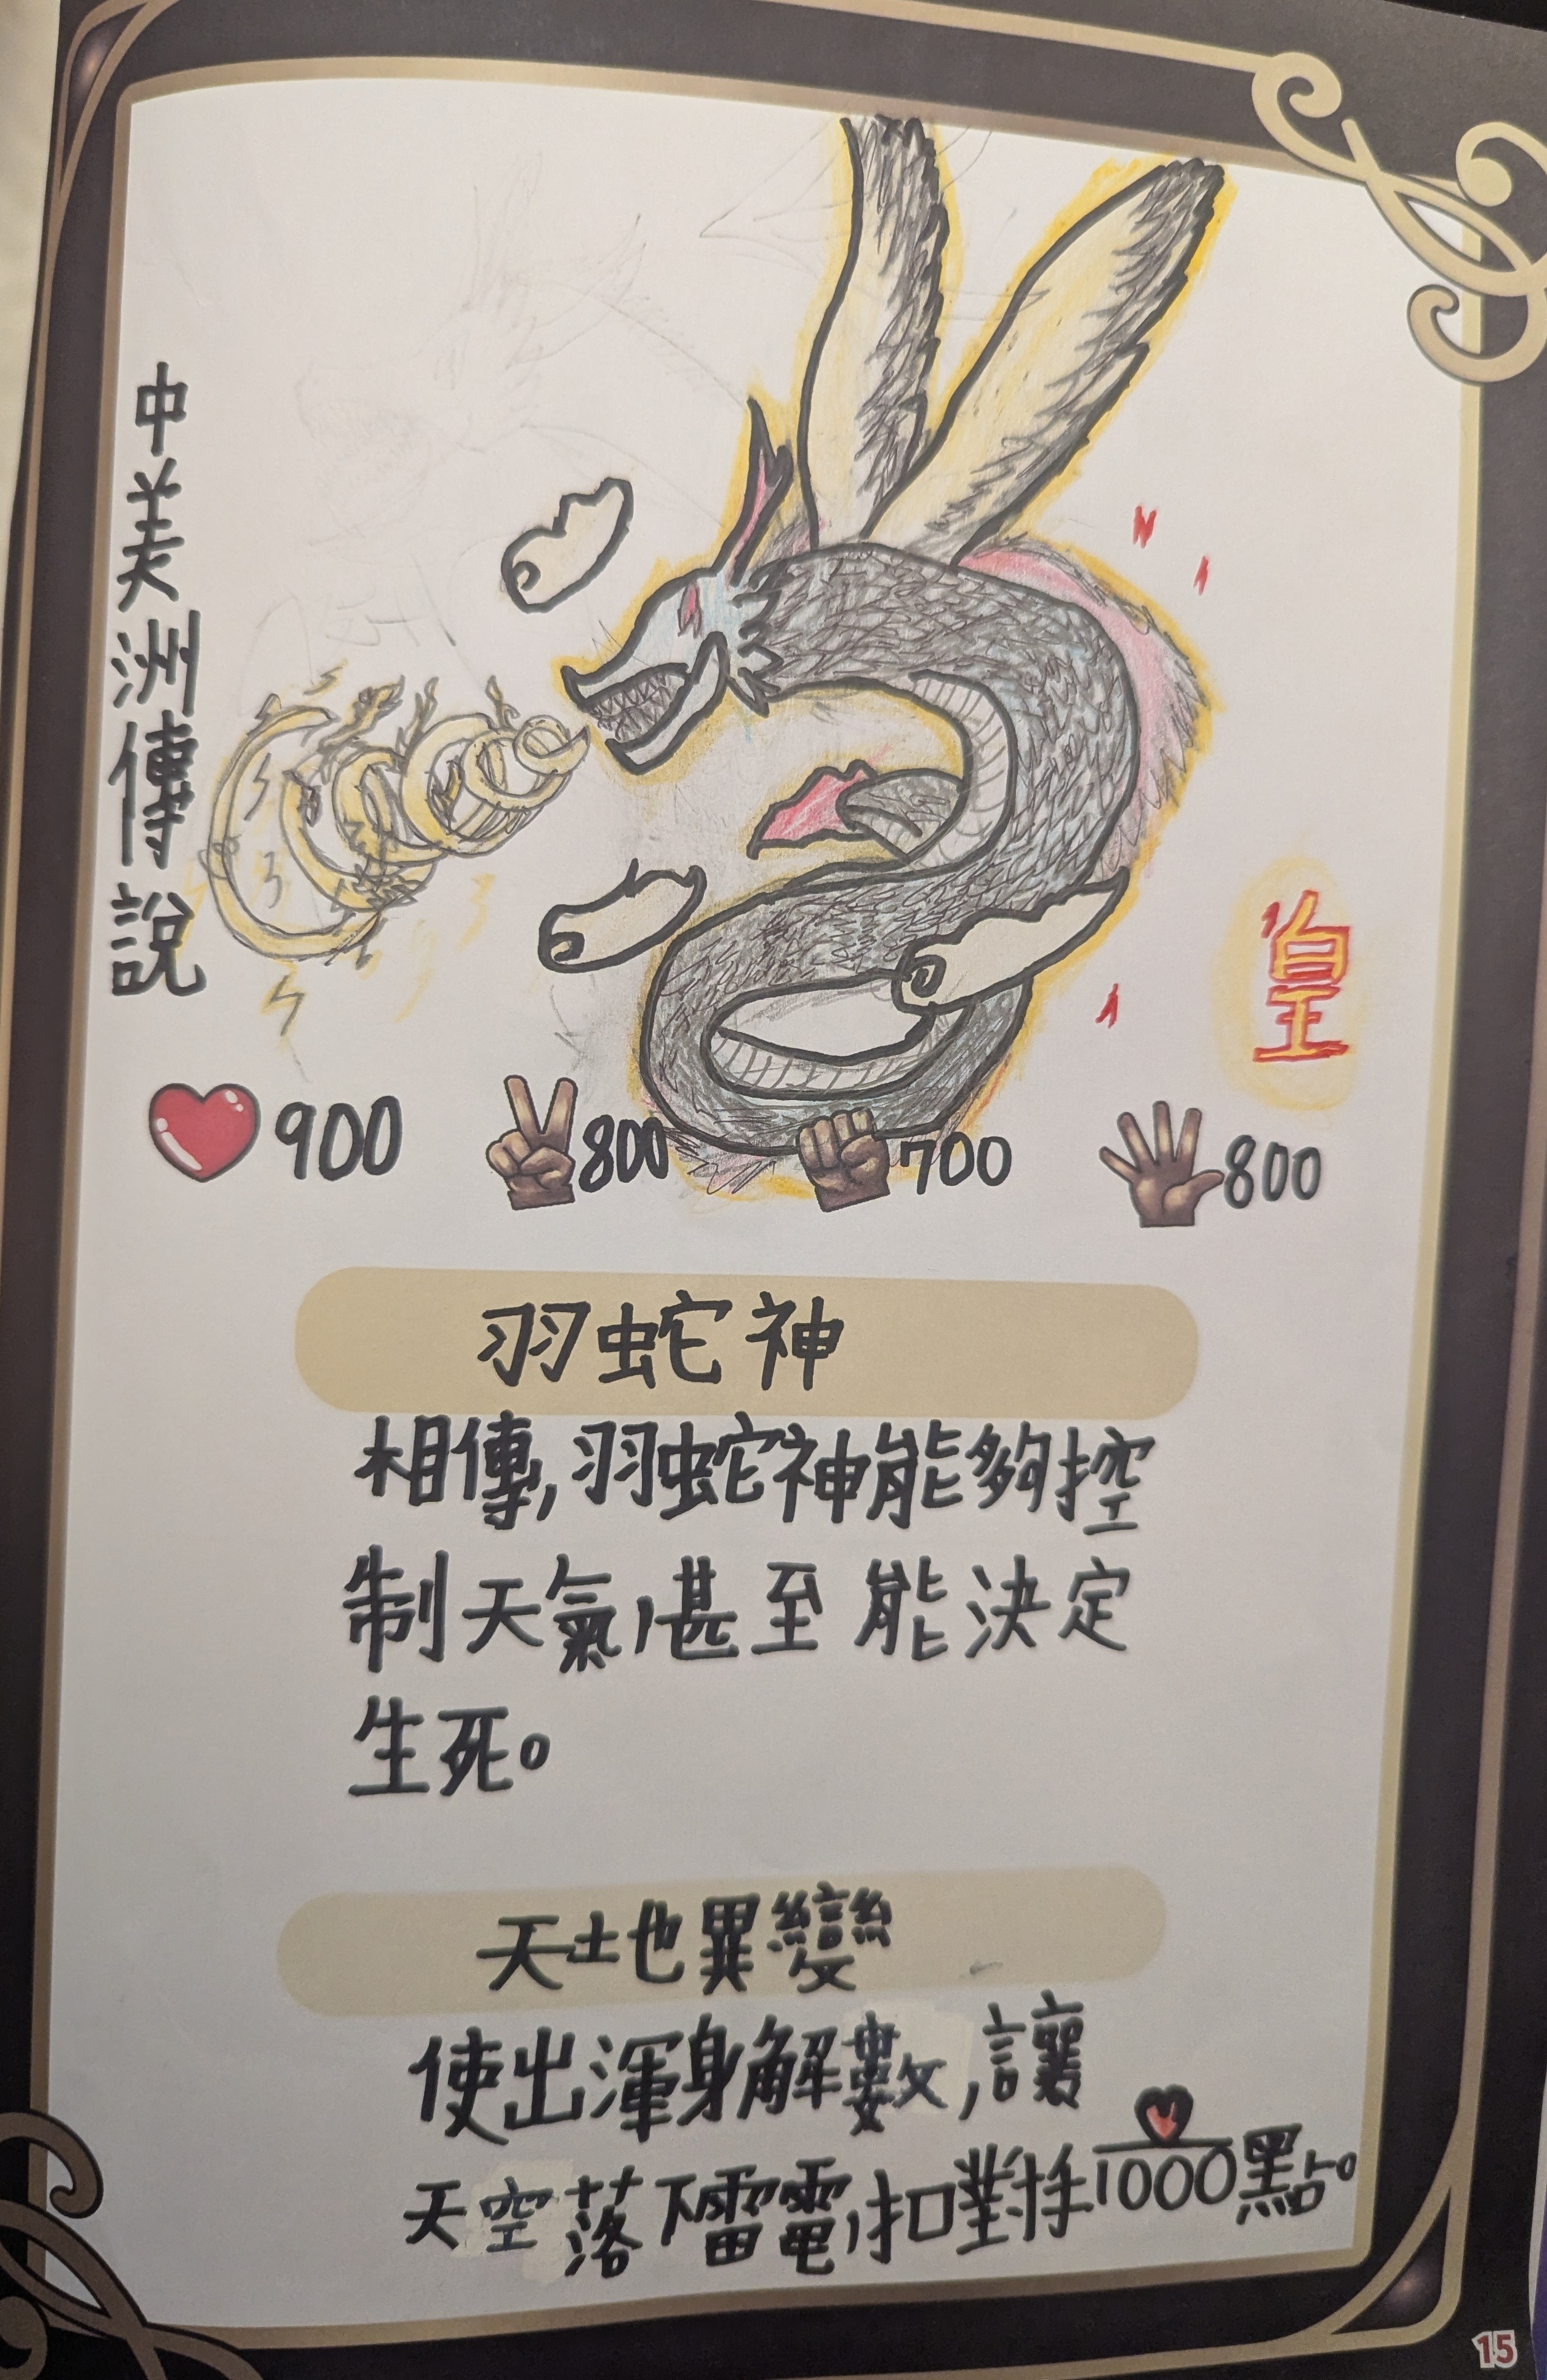 中美洲傳說
皇
900
800
700
800
羽蛇神
相傳,羽蛇神能夠控
制天氣,甚至能決定
生死。
天地異變
使出渾身解數,讓
天空落下雷電,扣對手1000點。
15